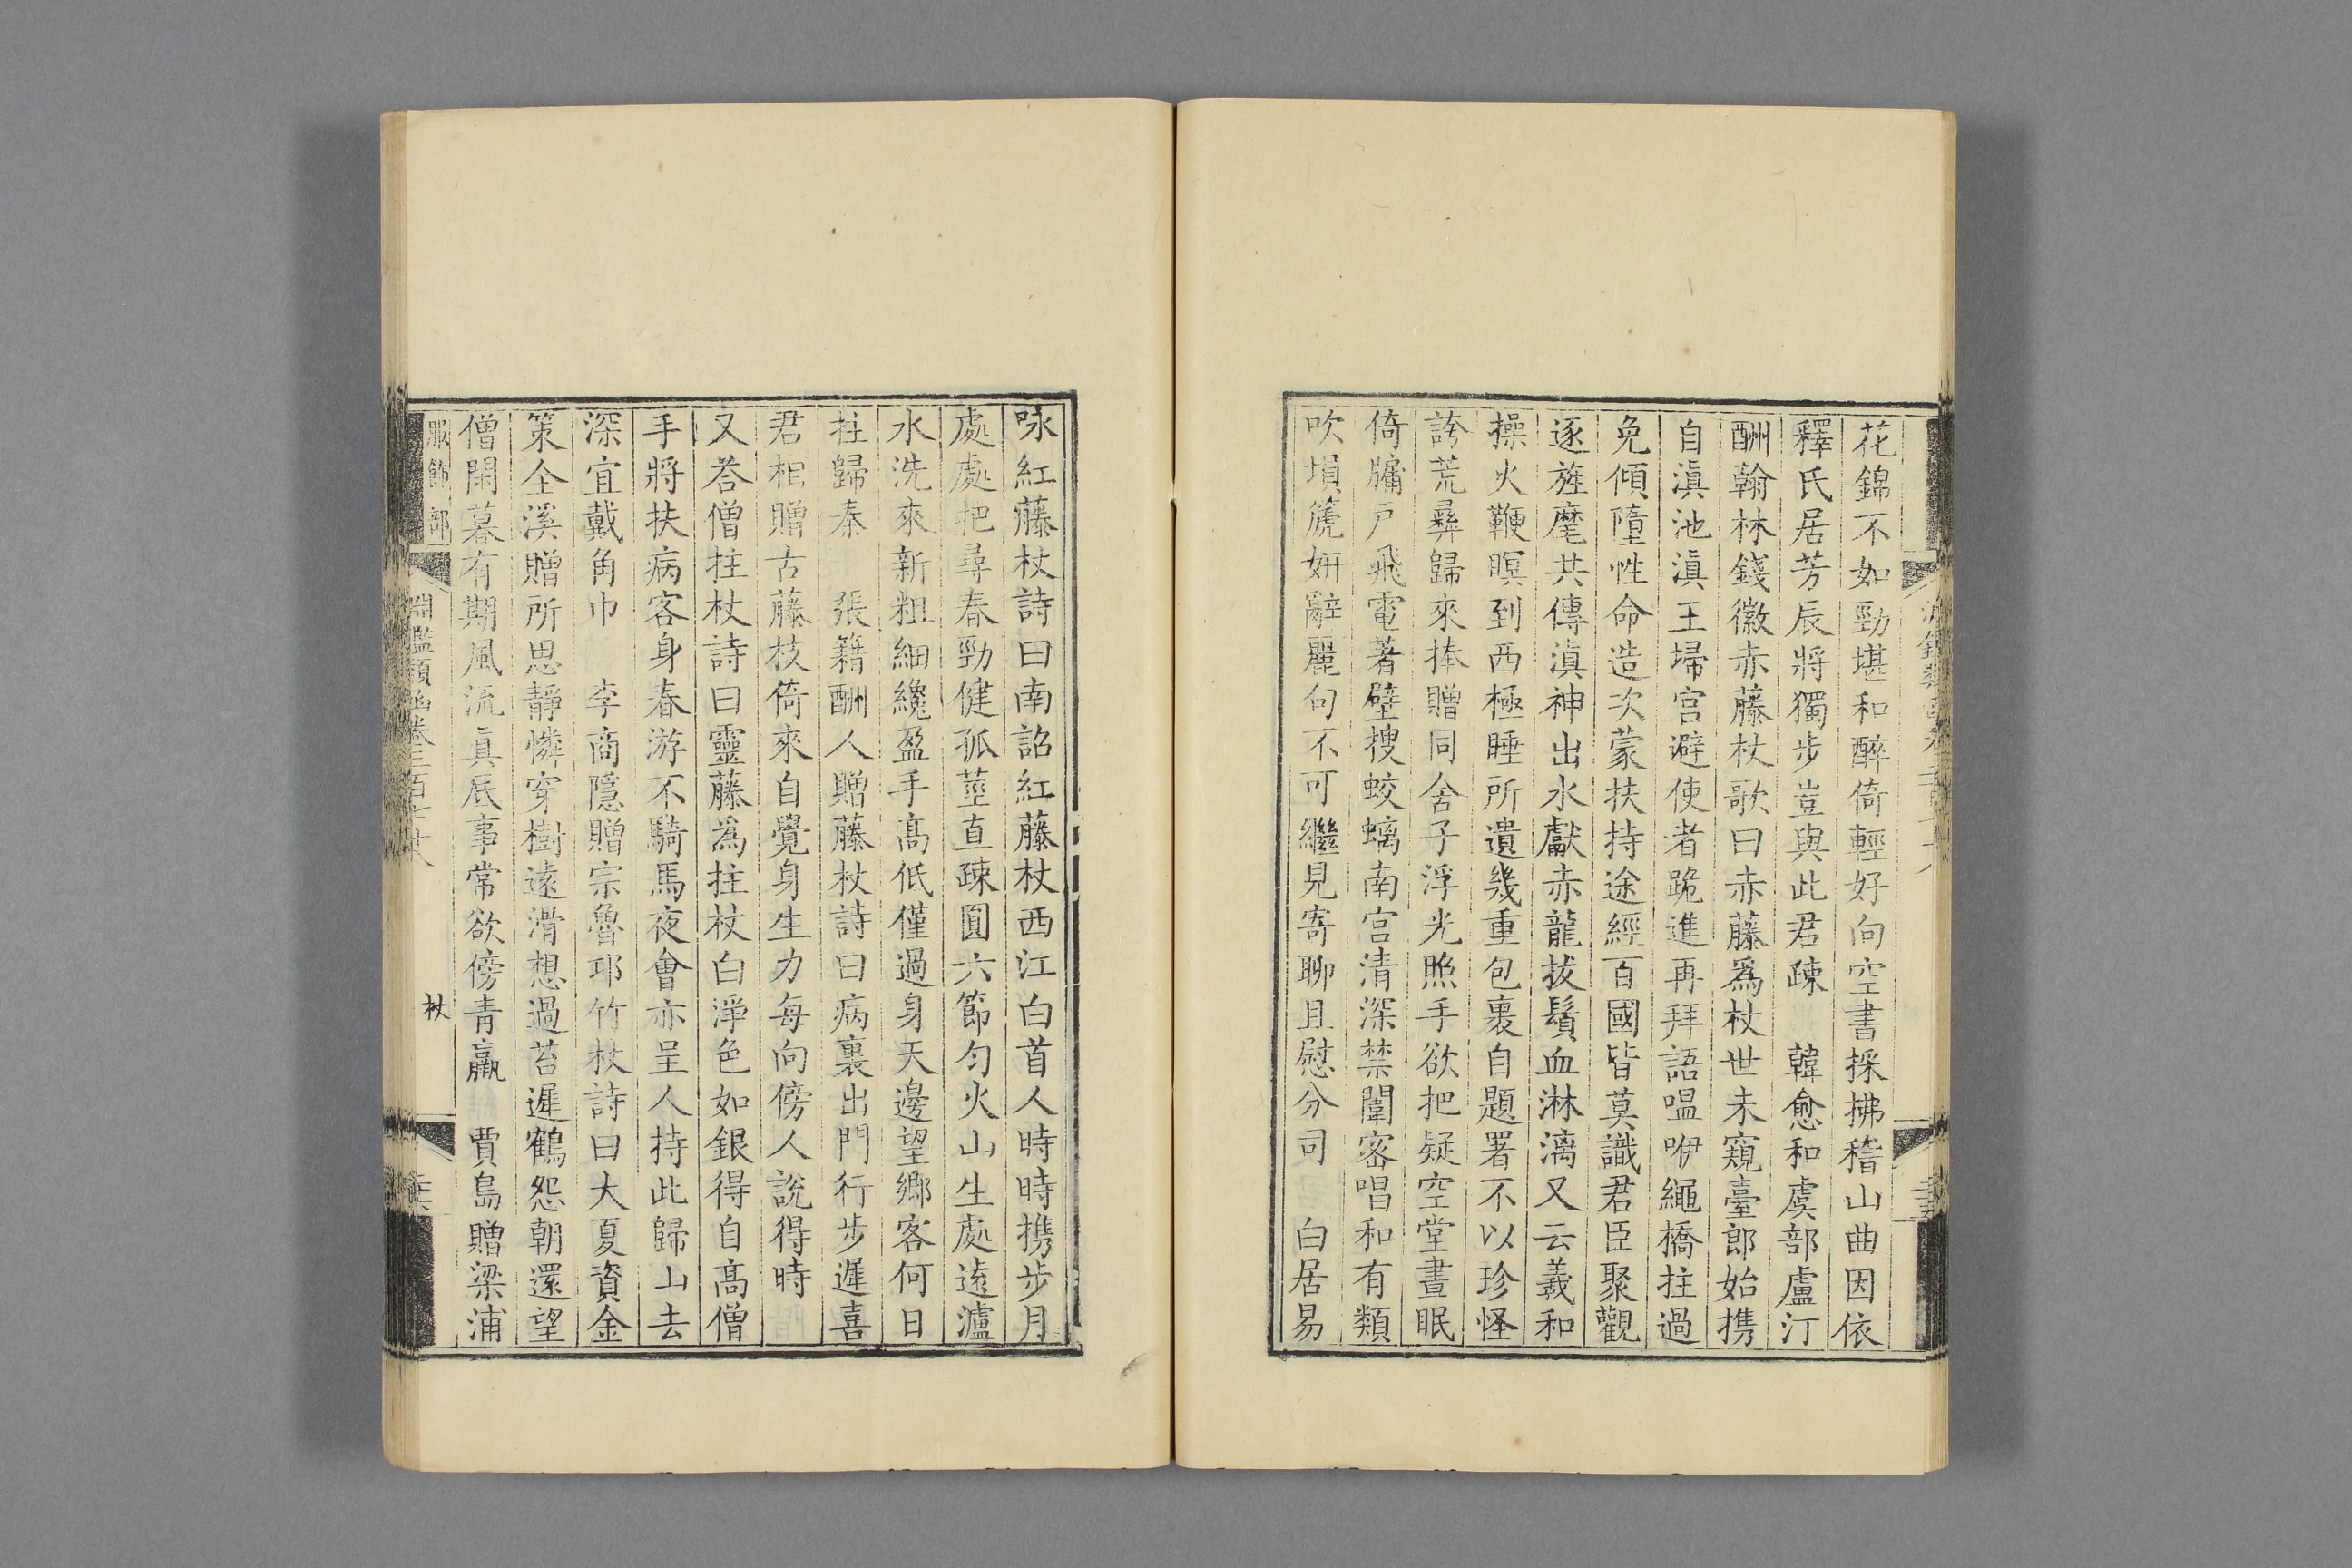 花錦不如勁堪和醉倚輕好向空書採拂稽山曲因依
釋氏居芳辰將獨步豈與此君疎　韓愈和虞部盧汀
酬翰林錢徽赤藤杖歌曰赤藤爲杖世未窺臺郎始携
自滇池滇王埽宫避使者跪進再拜語嗢咿繩橋拄過
免傾墮性命造次蒙扶持途經百國皆莫識君臣聚觀
逐旌麾共傳滇神出水獻赤龍拔鬚血淋漓又云羲和
操火鞭暝到西極睡所遺幾重包裹自題署不以珍怪
誇荒彝歸來捧贈同舍子浮光照手欲把疑空堂晝眠
倚牖戸飛電著壁搜蛟螭南宫清深禁闈密唱和有類
吹塤篪妍辭麗句不可繼見寄聊且慰分司　白居易
咏紅藤杖詩曰南詔紅藤杖西江白首人時時携步月
處處把尋春勁健孤莖直疎圓六節勻火山生處遠瀘
水洗來新粗細纔盈手高低僅過身天邊望鄉客何日
拄歸秦　張籍酬人贈藤杖詩曰病裏出門行步遲喜
君相贈古藤枝倚來自覺身生力每向傍人說得時
又荅僧拄杖詩曰靈藤爲拄杖白淨色如銀得自高僧
手將扶病客身春游不騎馬夜會亦呈人持此歸山去
深宜戴角巾　李商隱贈宗魯邛竹杖詩曰大夏資金
策全溪贈所思靜憐穿樹遠滑想過苔遲鶴怨朝還望
僧閑暮有期風流真底事常欲傍青羸　賈島贈梁浦
服飾部　淵鑑類函卷三百七十八　杖